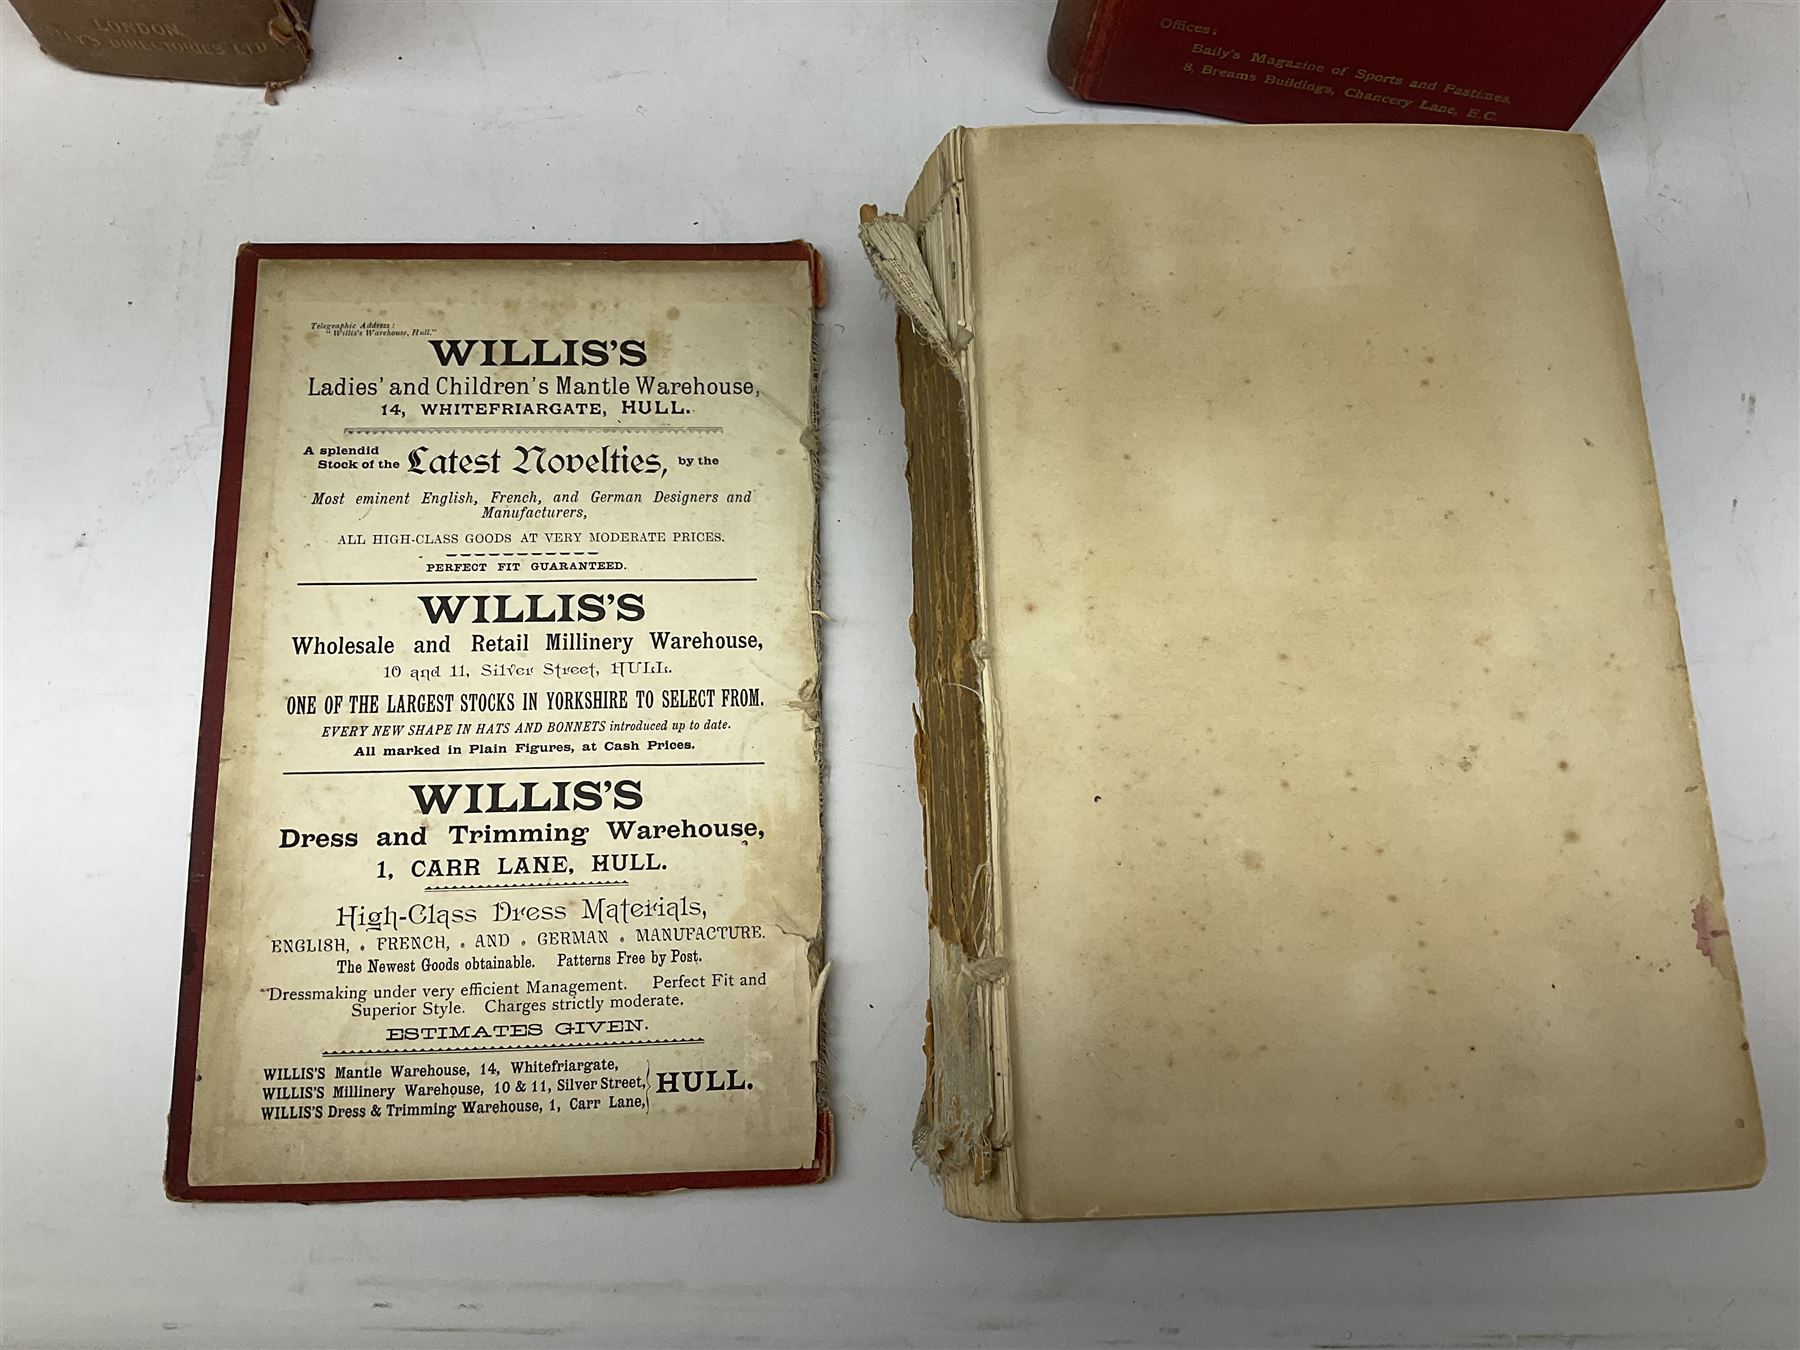 LONDON
DIRECTORIES LTD
Offices:
Baily's Magazine of Sports and Pastimes,
8, Breams Buildings, Chancery Lane, E.C.
Telegraphic Address:
"Willis's Warehouse, Hull."
WILLIS'S
Ladies' and Children's Mantle Warehouse,
14, WHITEFRIARGATE, HULL.
A splendid
Stock of the Latest Novelties, by the
Most eminent English, French, and German Designers and
Manufacturers,
ALL HIGH-CLASS GOODS AT VERY MODERATE PRICES.
PERFECT FIT GUARANTEED.
WILLIS'S
Wholesale and Retail Millinery Warehouse,
10 and 11, Silver Street, HULL.
ONE OF THE LARGEST STOCKS IN YORKSHIRE TO SELECT FROM.
EVERY NEW SHAPE IN HATS AND BONNETS introduced up to date.
All marked in Plain Figures, at Cash Prices.
WILLIS'S
Dress and Trimming Warehouse,
1, CARR LANE, HULL.
High-Class Dress Materials,
ENGLISH, FRENCH, AND GERMAN MANUFACTURE.
The Newest Goods obtainable. Patterns Free by Post.
Dressmaking under very efficient Management. Perfect Fit and
Superior Style. Charges strictly moderate.
ESTIMATES GIVEN.
WILLIS'S Mantle Warehouse, 14, Whitefriargate,
WILLIS'S Millinery Warehouse, 10 & 11, Silver Street, HULL.
WILLIS'S Dress & Trimming Warehouse, 1, Carr Lane,